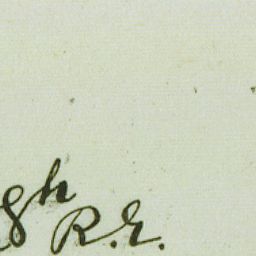 gh
R.E.